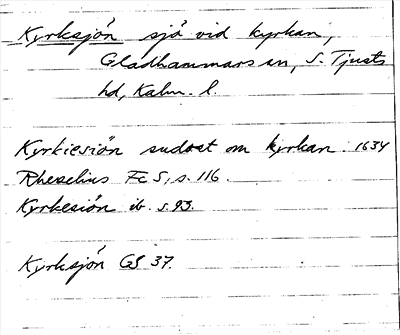 Kyrksjön sjö vid kyrkan,
Gladhammars sn, S. Tjusts
hd, Kalm. l.
Kyrkiesiön sudost om kyrkan. 1634
Rhezelius Fc 5, s. 116.
Kyrkesiön ib. s. 93.
Kyrksjön GS 37.